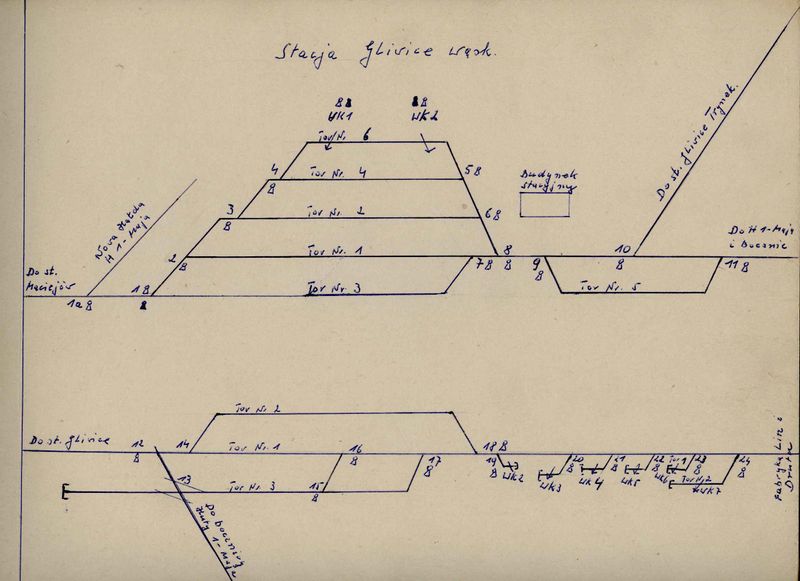 Stacja Gliwice wąsk.
8 8
WK1
8 8
WK2
Tor Nr. 6
4
8
Tor Nr. 4
5 8
Budynek
stacyjny
Do st. Gliwice Trynek.
3
8
Tor Nr. 2
6 8
Nova Hałda
H 1-Maja
2
8
Tor Nr. 1
7 8
8
8
9
8
10
8
Do H 1-Maja
i Bocznic
11 8
Do st.
Maciejów
1a 8
1 8
8
Tor Nr. 3
Tor Nr. 5
Tor Nr. 2
Do st. Gliwice
12
8
14
Tor Nr. 1
16
8
17
8
18 8
19
8
WK2
WK3
20
8
WK4
21
8
WK5
22
8
WK6
Tor 1
23
8
Tor Nr 2
WK7
24
8
Fabryka Lin i
Drutu
13
Tor Nr. 3
15
8
Do bocznicy
Huty 1-Maja